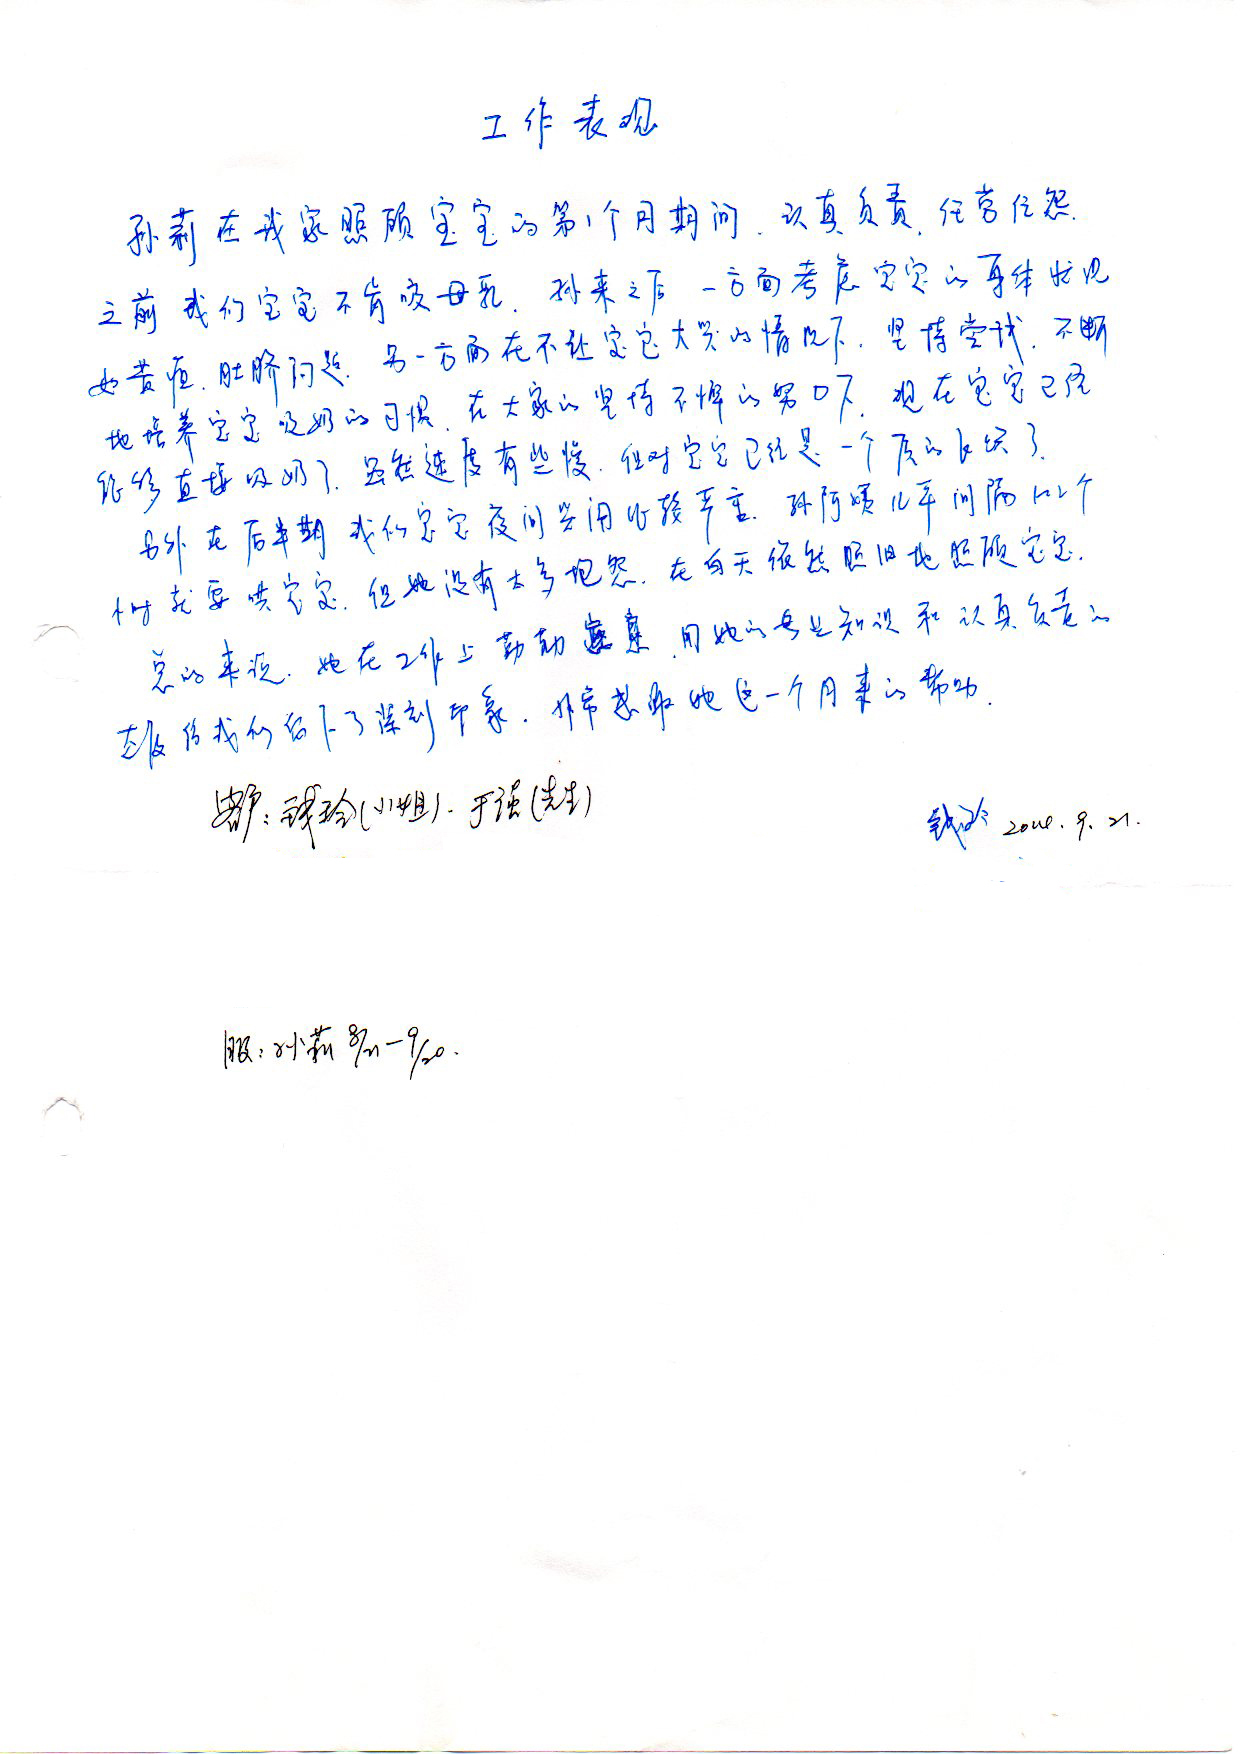 工作表现
孙莉在我家照顾宝宝的第1个月期间，认真负责，任劳任怨。
之前我们宝宝不肯咬母乳，孙来之后一方面考虑宝宝的身体状况
如黄疸、肚脐问题，另一方面在不让宝宝大哭的情况下，坚持尝试，不断
地培养宝宝吸奶的习惯，在大家的坚持不懈的努力下，现在宝宝已经
能够直接吸奶了，虽然速度有些慢，但对宝宝已经是一个质的飞跃了。
另外在后半期我们宝宝夜间哭闹比较严重，孙阿姨几乎间隔1~2个
小时就要哄宝宝，但她没有太多抱怨，在白天依然照旧地照顾宝宝。
总的来说，她在工作上勤勤恳恳，用她的专业知识和认真负责的
态度给我们留下了深刻印象，非常感谢她这一个月来的帮助。
客户：钱玲(小姐)、于强(先生)
钱玲 2004.9.21.
服：孙莉 8/21—9/20.